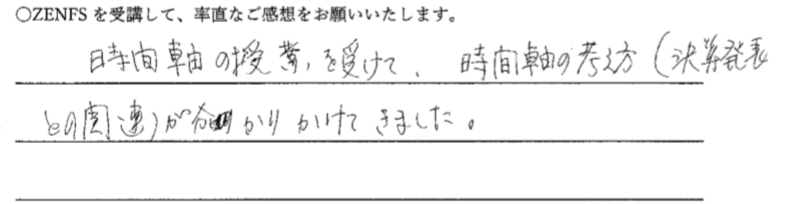 ○ZENFS を受講して、率直なご感想をお願いいたします。
時間軸の授業を受けて、時間軸の考え方(決算発表
との関連)が分かりかけてきました。